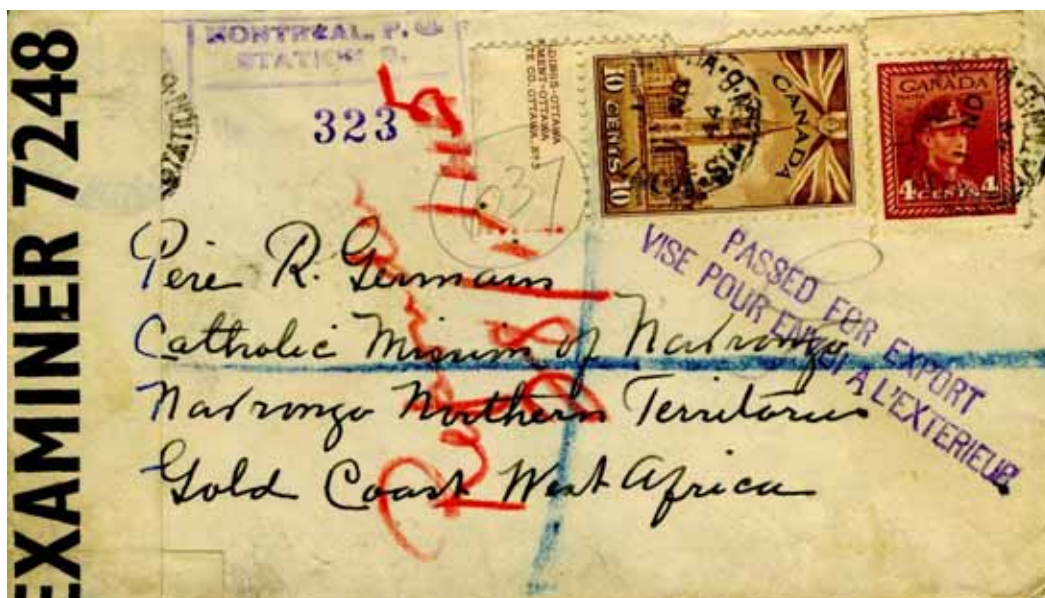 EXAMINER 7248
MONTREAL, P. Q.
STATION
323
LDINGS-OTTAWA
MENT-OTTAWA
TE CO. OTTAWA.
CANADA
10 CENTS 10
CANADA
4 CENTS 4
637
PASSED FOR EXPORT
VISE POUR ENVOI A L'EXTERIEUR
Père R. Germain
Catholic Mission of Navrongo
Navrongo Northern Territories
Gold Coast West Africa